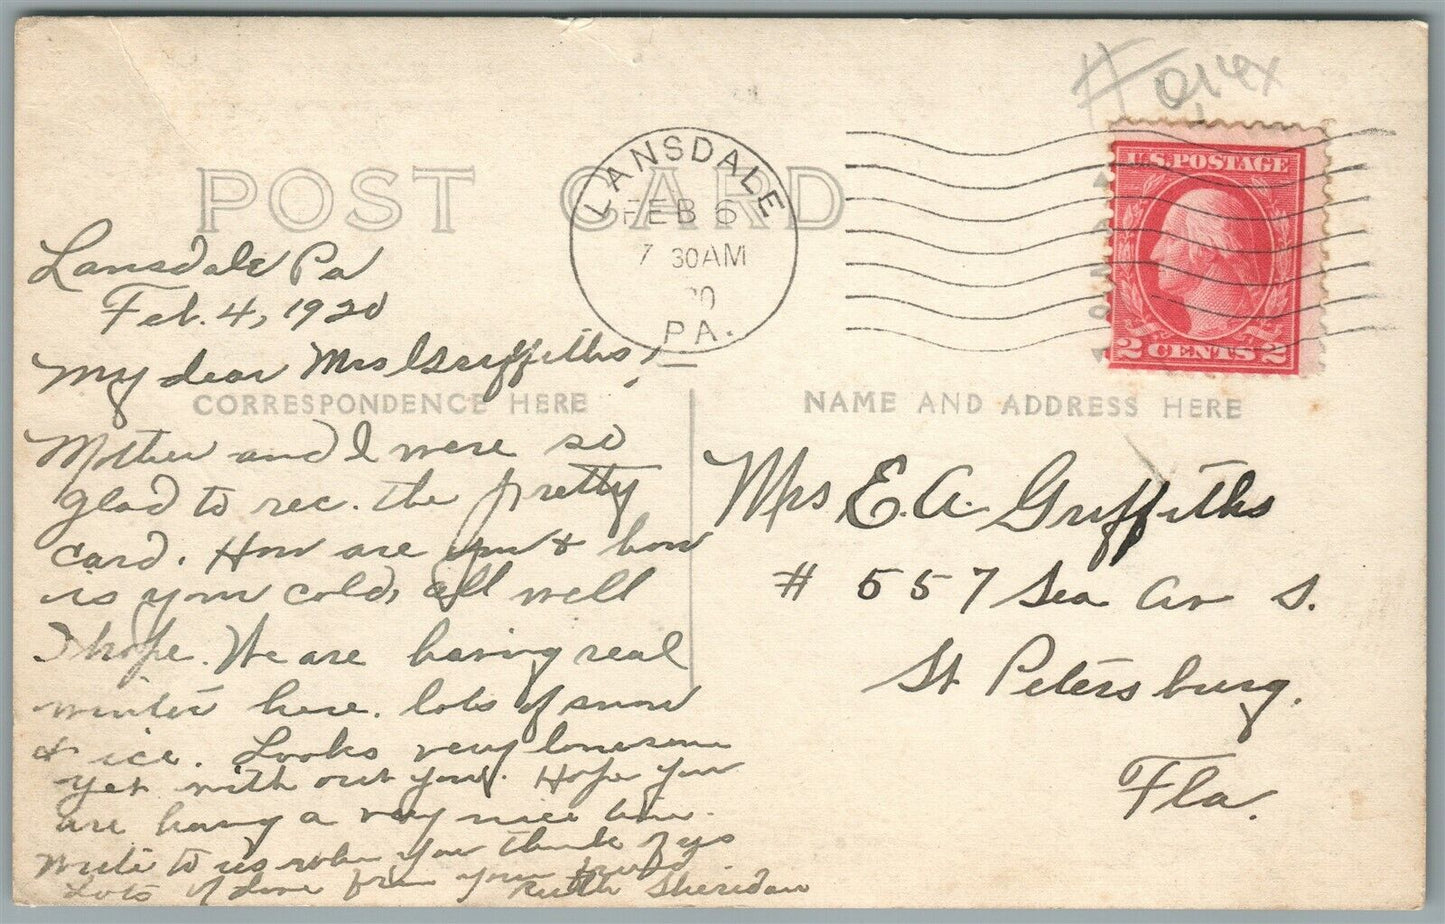 POST CARD
LANSDALE
FEB 6
7 30 AM
20
PA.
U.S. POSTAGE
2 CENTS 2
Lansdale Pa
Feb. 4, 1920
My dear Mrs Griffiths,
CORRESPONDENCE HERE
Mother and I were so
glad to rec. the pretty
card. How are you & how
is your cold, all well
I hope. We are having real
winter here. lots of snow
& ice. Looks very lonesome
yet with out you. Hope you
are having a very nice time.
Write to us when you think of us
Lots of love from your friend
Ruth Sheridan
NAME AND ADDRESS HERE
Mrs E. A. Griffiths
# 557 Sea Av S.
St Petersburg.
Fla.